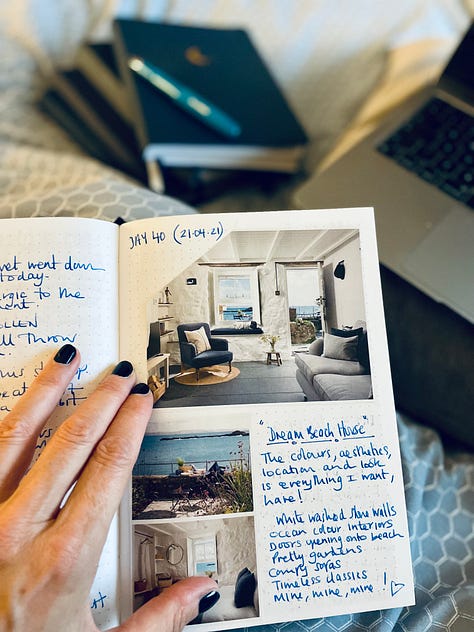 went down
today-
to me
DAY 40 (21.04.21)
"Dream Beach House"
The colours, aesthetics,
location and look
is everything I want,
have!
White washed stone walls
ocean colour interiors
Doors opening onto beach
Pretty gardens
Comfy sofas
Timeless classics
Mine, mine, mine!